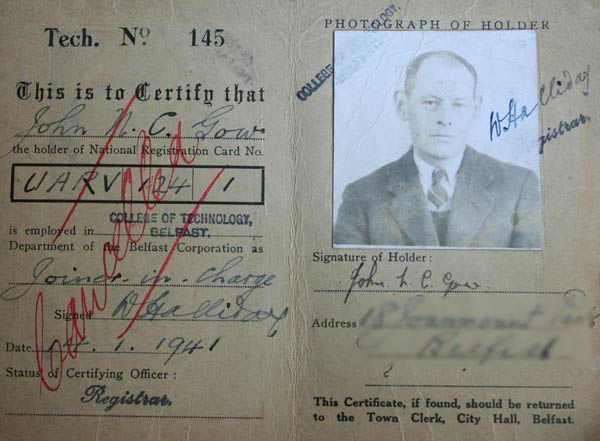 Tech. No 145
This is to Certify that
John N. C. Gow
the holder of National Registration Card No.
UARV 124 1
COLLEGE OF TECHNOLOGY,
BELFAST.
is employed in
Department of the Belfast Corporation as
Joiner-in-Charge
Signed W Halliday
Date 4.1.1941
Status of Certifying Officer:
Registrar.
Cancelled
PHOTOGRAPH OF HOLDER
COLLEGE OF TECHNOLOGY,
BELFAST.
W Halliday
Registrar.
Signature of Holder:
John N. C. Gow.
Address
Belfast
This Certificate, if found, should be returned
to the Town Clerk, City Hall, Belfast.